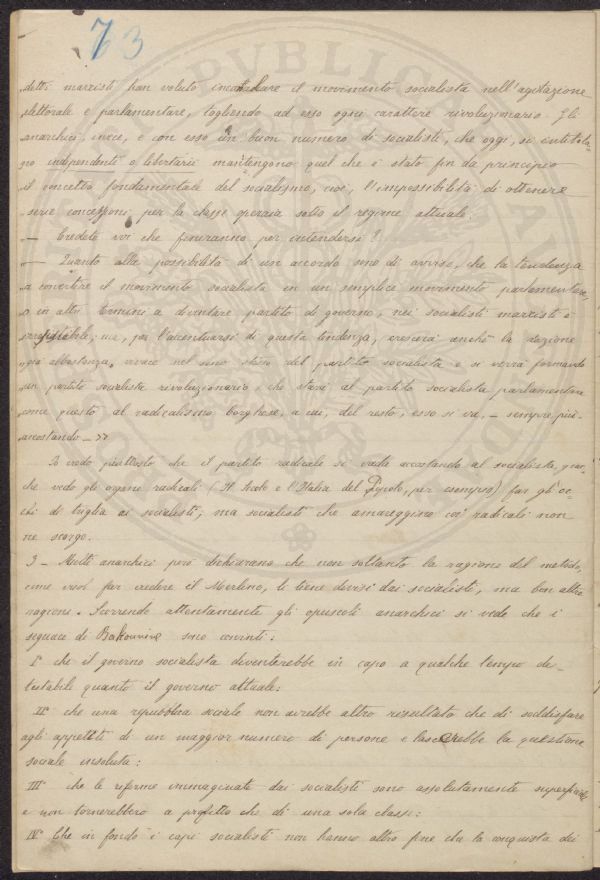 73
detti marxisti han voluto incanalare il movimento socialista nell'agitazione
elettorale e parlamentare, togliendo ad esso ogni carattere rivoluzionario. Gli
anarchici invece, e con esso un buon numero di socialisti, che oggi, si intitola-
no indipendenti o libertarii mantengono quel che è stato fin da principio
il concetto fondamentale del socialismo, cioè, l'impossibilità di ottenere
serie concessioni per la classe operaia sotto il regime attuale.
— Credete voi che finiranno per intendersi?
— Quanto alla possibilità di un accordo sono di avviso, che la tendenza
a convertire il movimento socialista in un semplice movimento parlamentare,
o in altri termini a diventare partito di governo, nei socialisti marxisti è
irresistibile; ma, per l'accentuarsi di questa tendenza, crescerà anche la reazione
già abbastanza, vivace nel seno stesso del partito socialista e si verrà formando
un partito socialista rivoluzionario, che starà al partito socialista parlamentare
come questo al radicalismo borghese, a cui, del resto, esso si va, — sempre più
accostando —»
Io vedo piuttosto che il partito radicale si vada accostando al socialista, giac-
chè vedo gli organi radicali (Il Secolo e l'Italia del Popolo, per esempio) far gli oc-
chi di triglia ai socialisti; ma socialisti che amareggino coi radicali non
ne scorgo.
3 — Molti anarchici però dichiarano che non soltanto la ragione del metodo,
come vuol far credere il Merlino, li tiene divisi dai socialisti, ma ben altre
ragioni. Scorrendo attentamente gli opuscoli anarchici si vede che i
seguaci di Bakounine sono convinti:
I° che il governo socialista diventerebbe in capo a qualche tempo de-
testabile quanto il governo attuale:
II° che una repubblica sociale non avrebbe altro resultato che di soddisfare
agli appetiti di un maggior numero di persone e lascerebbe la questione
sociale insoluta:
III° che le riforme immaginate dai socialisti sono assolutamente superficiali
e non tornerebbero a profitto che di una sola classe:
IV° Che in fondo i capi socialisti non hanno altro fine che la conquista dei